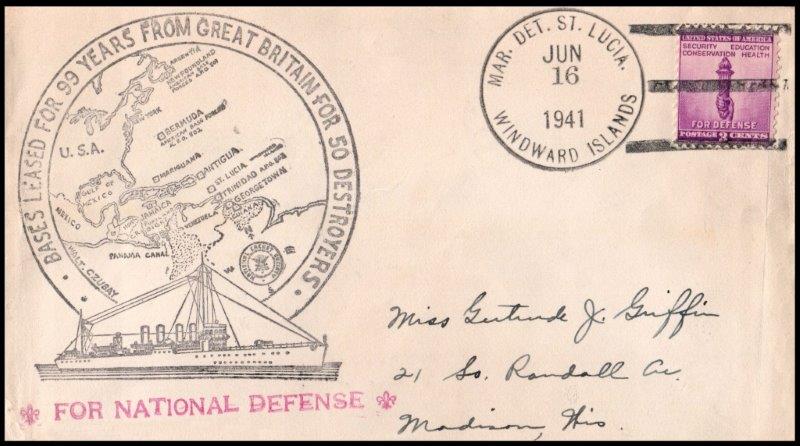 BASES LEASED FOR 99 YEARS FROM GREAT BRITAIN FOR 50 DESTROYERS.
ARGENTIA
NEWFOUNDLAND
NEW YORK
BERMUDA
AMERICAN BASE FORCES
A.P.O. 802.
U.S.A.
MARIGUANA
ANTIGUA
ST. LUCIA
TRINIDAD A.P.O. 803
GEORGETOWN
GULF OF
MEXICO
MEXICO
JAMAICA
VENEZUELA
PANAMA CANAL
WALT. CZUBAY
FOR NATIONAL DEFENSE
MAR. DET. ST. LUCIA.
JUN
16
1941
WINDWARD ISLANDS
UNITED STATES OF AMERICA
SECURITY EDUCATION
CONSERVATION HEALTH
FOR DEFENSE
POSTAGE 3 CENTS
Miss Gertrude J. Griffin
21 So. Randall Av.
Madison, Wis.